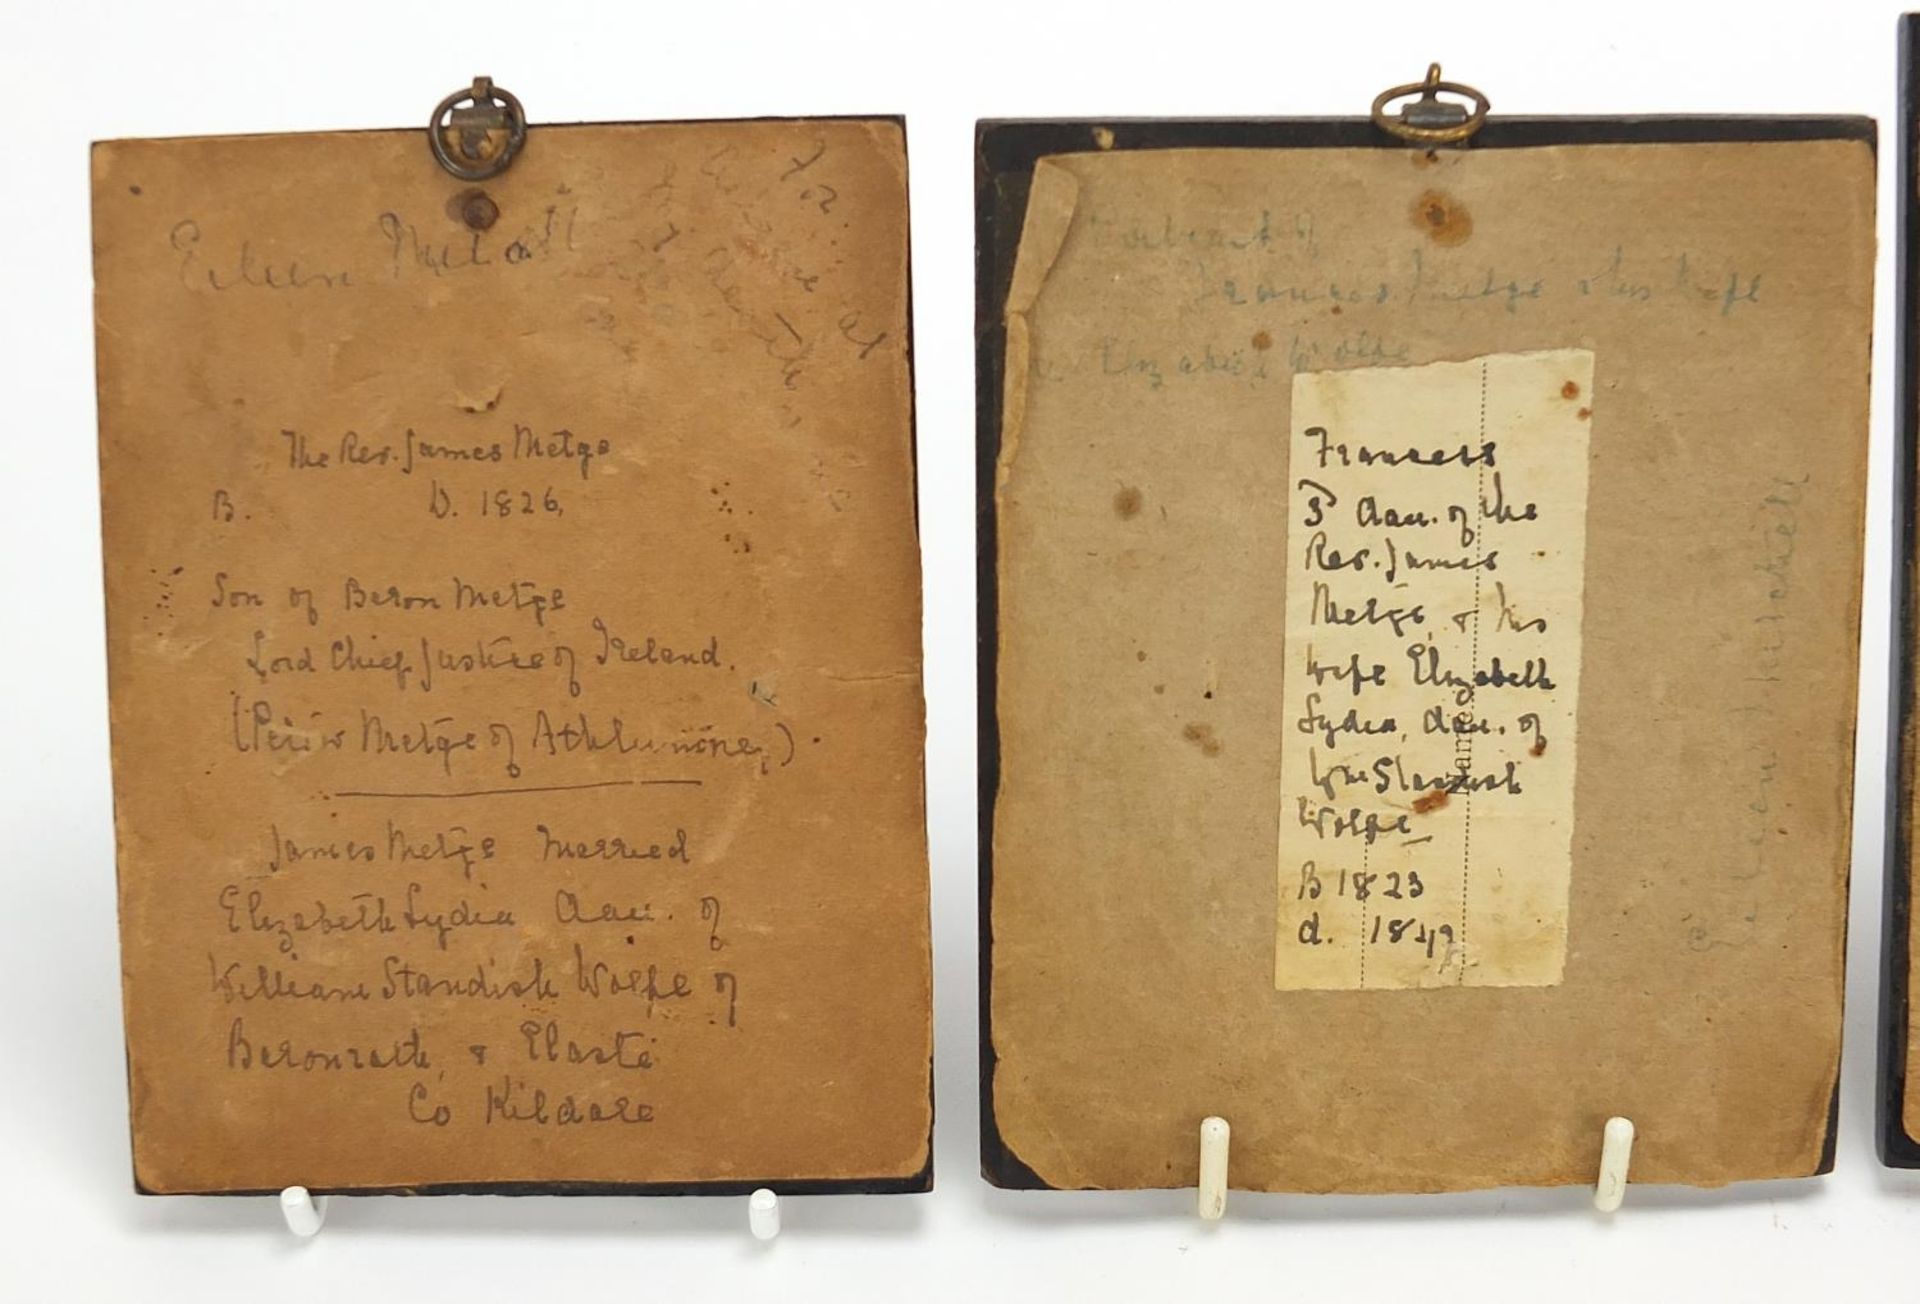 Eileen
The Rev. James Metge
B. D. 1826.
Son of Baron Metge
Lord Chief Justice of Ireland.
(Peter Metge of Athlumney)
James Metge Married
Elizabeth Lydia dau. of
William Standish Wolfe of
Baronrath, &
Co Kildare
Portrait of
Frances Metge & his wife
Elizabeth Wolfe
Frances
3 dau. of the
Rev. James
Metge, & his
wife Elizabeth
Lydia, dau. of
Wm Standish
Wolfe
B 1823
d. 1849
Name
Eileen Mitchell